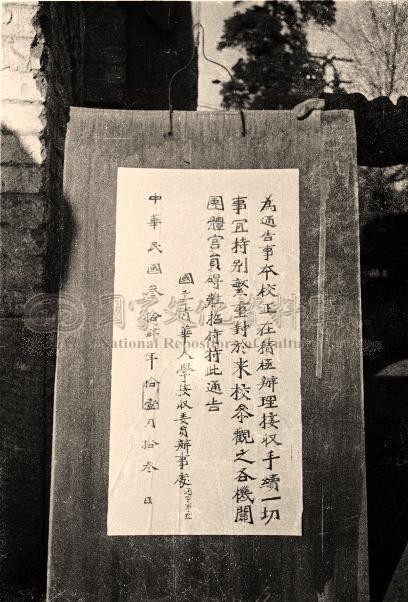 為通告事本校正在積極辦理接收手續一切
事冝特别繁重對於来校叅觀之各機關
團體官員碍難招待特此通告
國立清華大學接收委員辦事處
中華民國叁拾肆年拾壹月拾叁日
國家文化資料庫
National Repository of Cultu